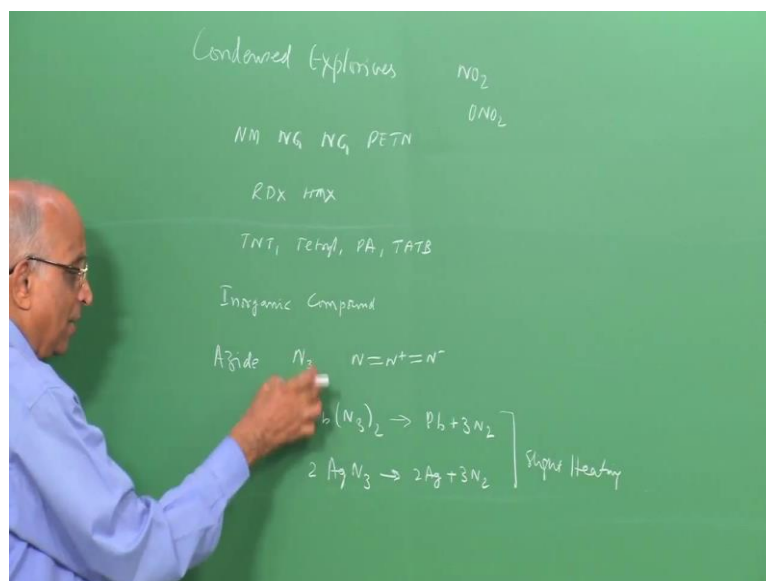 Condensed Explosives
NO₂
ONO₂
NM NG NG PETN
RDX HMX
TNT, Tetryl, PA, TATB
Inorganic Compound
Azide N₃ N=N⁺=N⁻
b(N₃)₂ → Pb+3N₂
2 AgN₃ → 2Ag+3N₂
Slight Heating